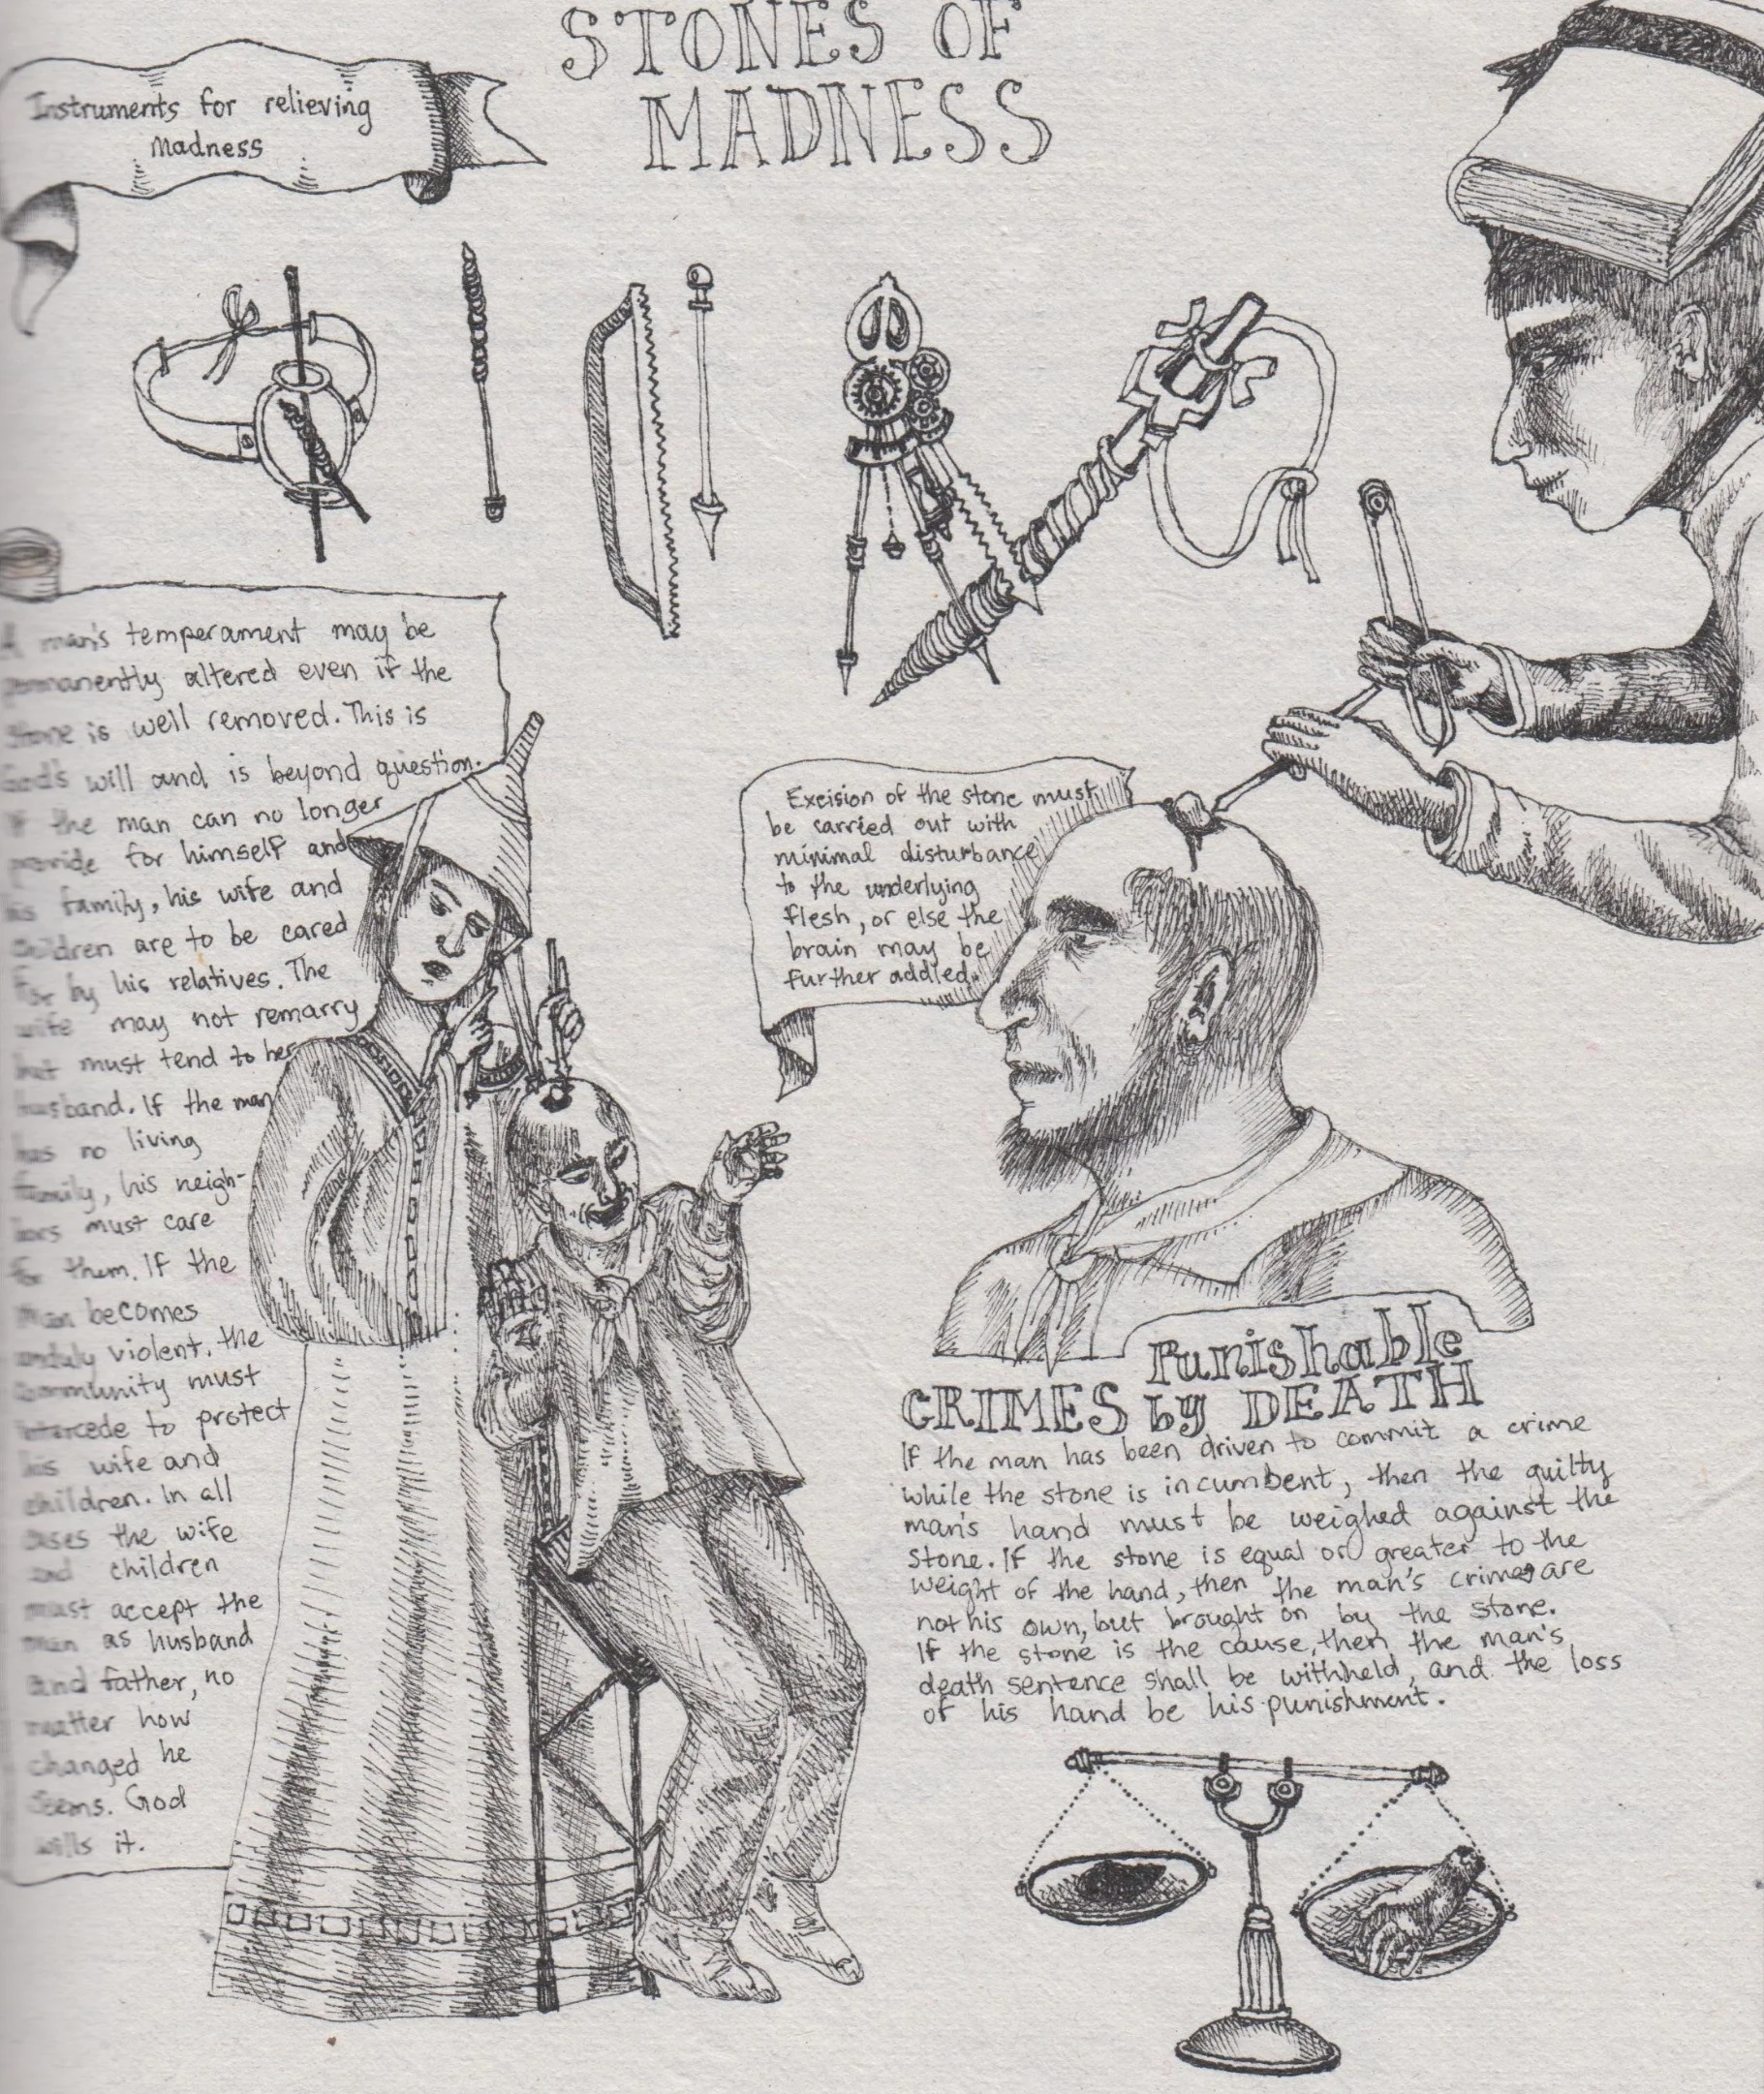 STONES OF
MADNESS
Instruments for relieving
Madness
A man's temperament may be
permanently altered even if the
stone is well removed. This is
God's will and is beyond question.
If the man can no longer
provide for himself and
his family, his wife and
children are to be cared
for by his relatives. The
wife may not remarry
but must tend to her
husband. If the man
has no living
family, his neigh-
bors must care
for them. If the
man becomes
unduly violent, the
community must
intercede to protect
his wife and
children. In all
cases the wife
and children
must accept the
man as husband
and father, no
matter how
changed he
seems. God
wills it.
Excision of the stone must
be carried out with
minimal disturbance
to the underlying
flesh, or else the
brain may be
further addled.
Punishable
CRIMES by DEATH
If the man has been driven to commit a crime
while the stone is incumbent, then the guilty
man's hand must be weighed against the
stone. If the stone is equal or greater to the
weight of the hand, then the man's crimes are
not his own, but brought on by the stone.
If the stone is the cause, then the man's
death sentence shall be withheld, and the loss
of his hand be his punishment.